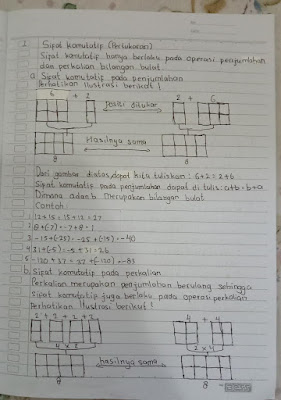 1. Sifat komutatif (Pertukaran)
Sifat komutatif hanya berlaku pada operasi penjumlahan
dan perkalian bilangan bulat.
a. Sifat komutatif pada penjumlahan
Perhatikan ilustrasi berikut !
6 + 2 2 + 6
Posisi ditukar
Hasilnya sama
8 8
Dari gambar diatas, dapat kita tuliskan : 6+2 = 2+6
Sifat komutatif pada penjumlahan dapat di tulis : a+b = b+a
Dimana a dan b merupakan bilangan bulat
Contoh:
1. 12+15 = 15+12 = 27
2. 8+(-7) = -7+8 = 1
3. -15+(-25) = -25+(-15) = -40
4. 31+(-5) = -5+31 = 26
5. -120+37 = 37+(-120) = -83
b. Sifat komutatif pada perkalian
Perkalian merupakan penjumlahan berulang sehingga
Sifat komutatif juga berlaku pada operasi perkalian
Perhatikan Ilustrasi berikut !
2 + 2 + 2 + 2 4 + 4
4 x 2 2 x 4
hasilnya sama
8 8